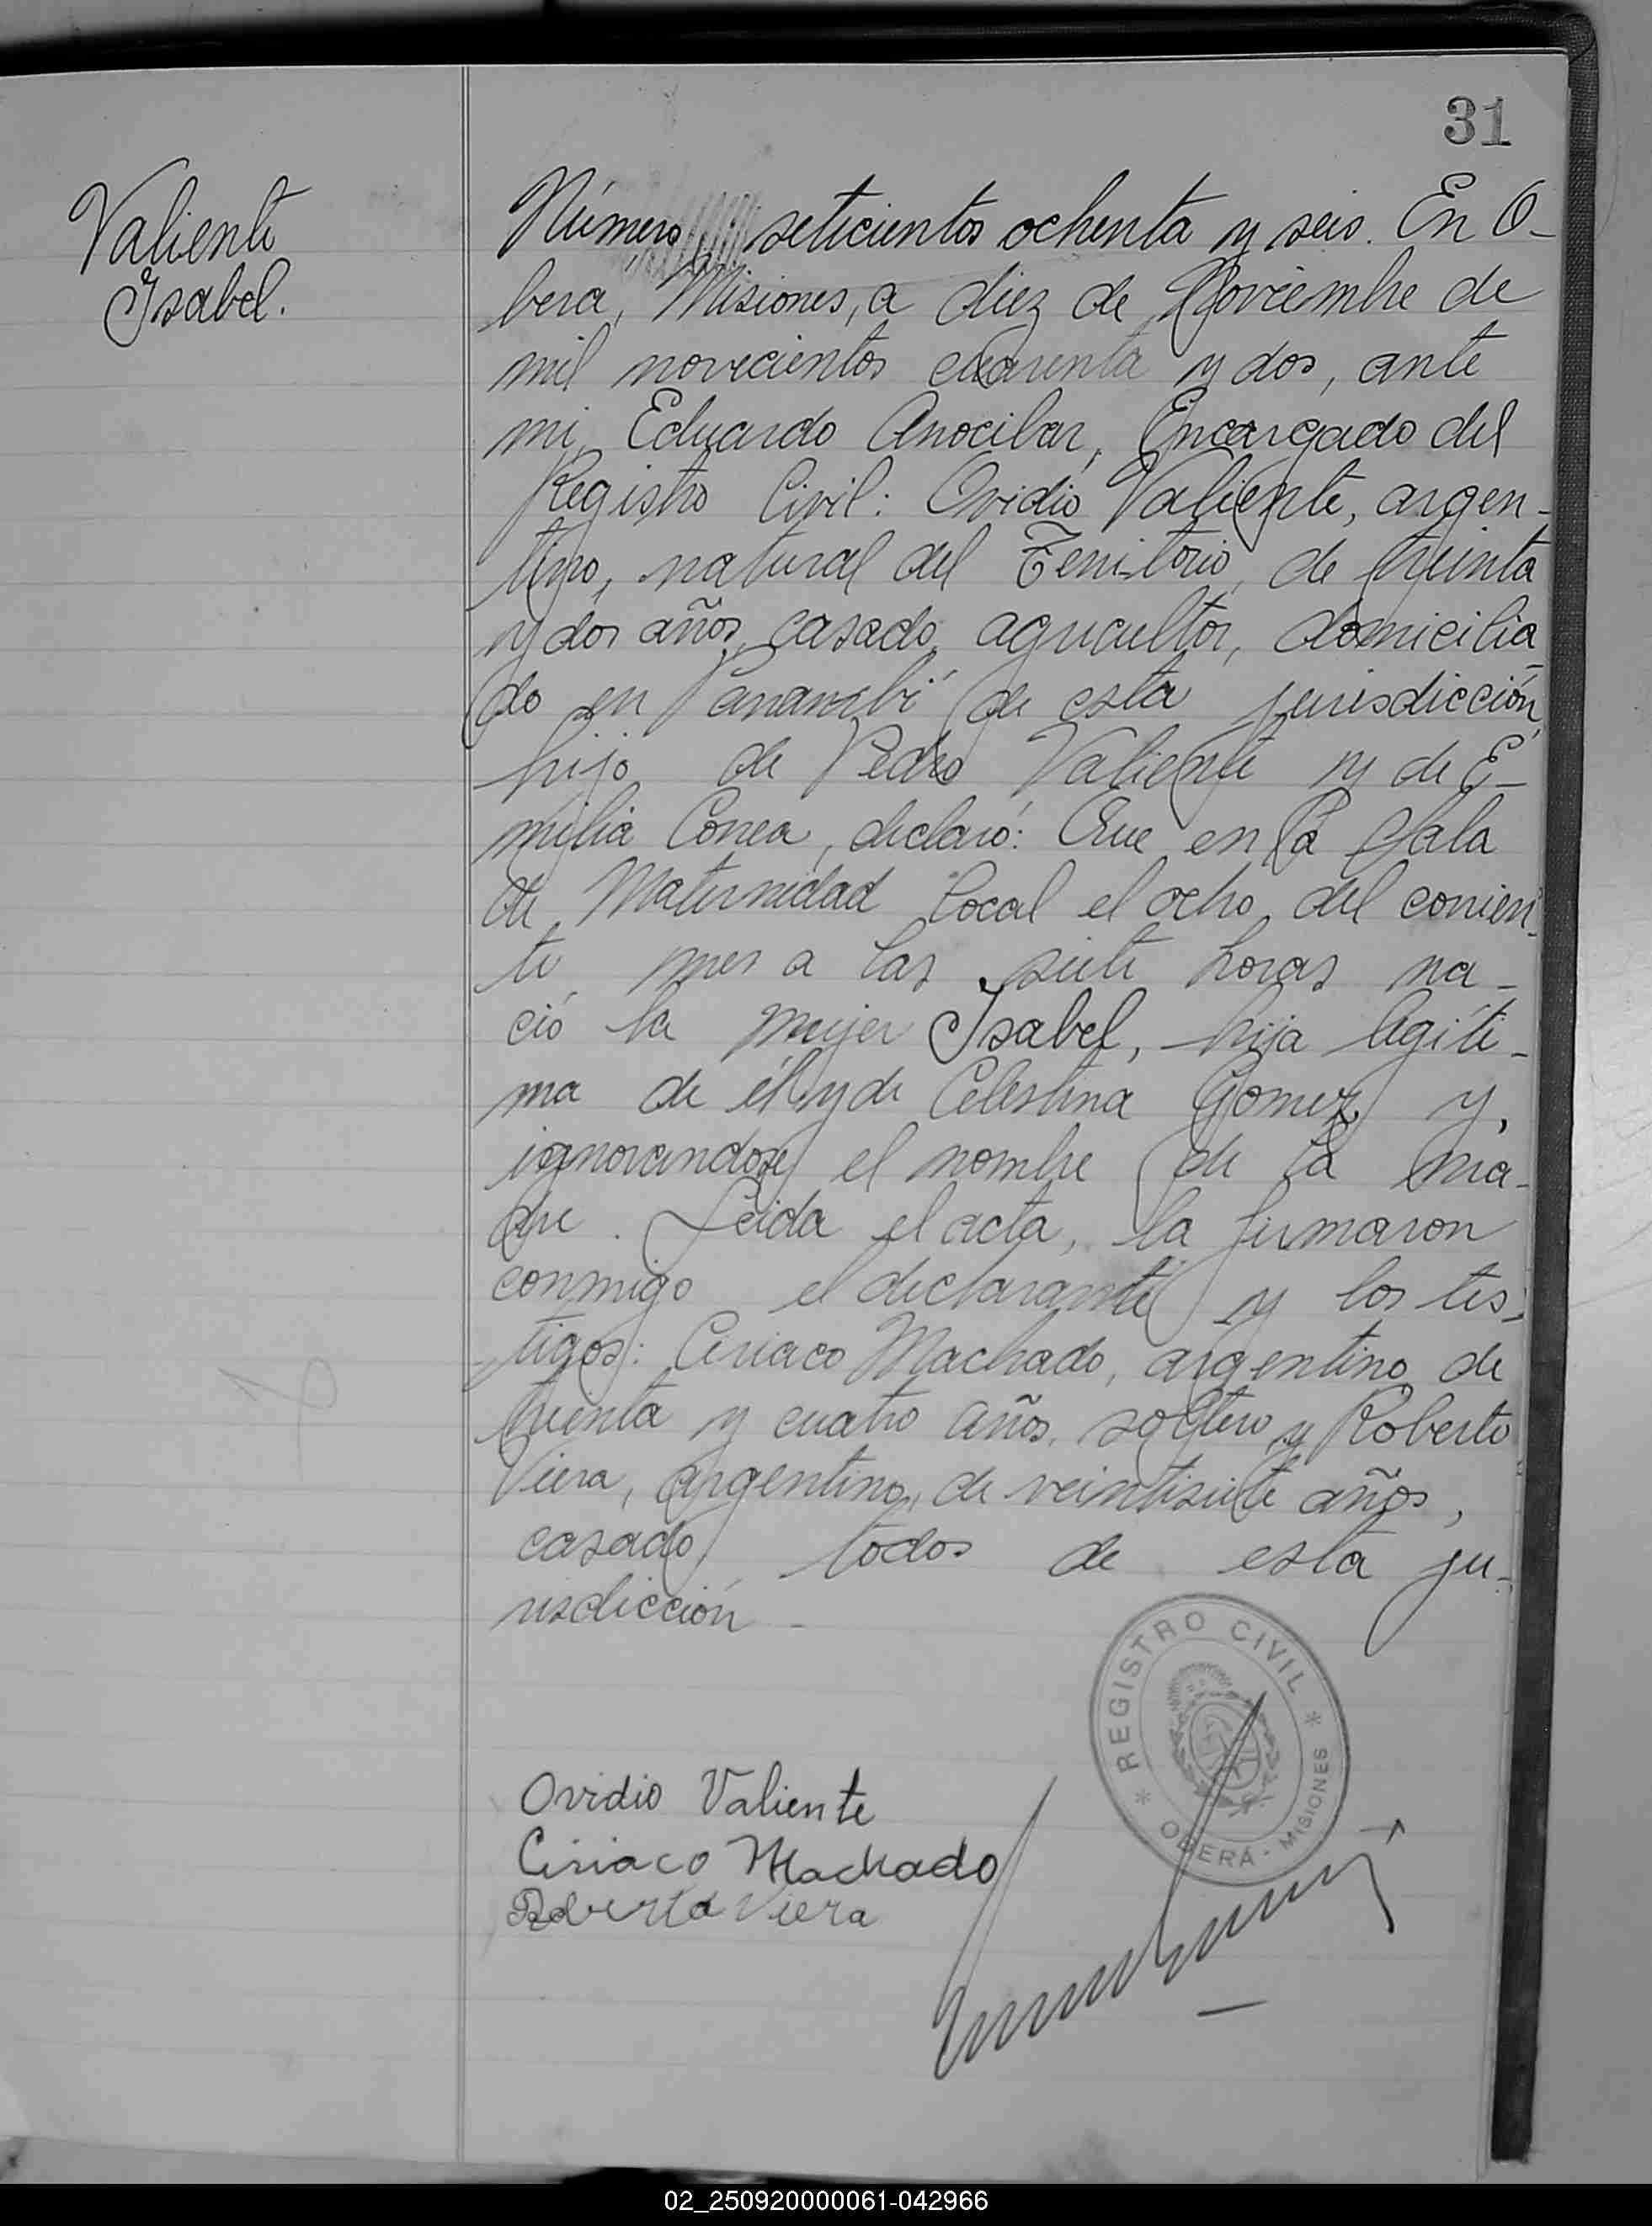 31
Valiente
Isabel.
Número seticientos ochenta y seis. En O-
bera, Misiones, a diez de Noviembre de
mil novecientos cuarenta y dos, ante
mi, Eduardo Anocibar, Encargado del
Registro Civil: Ovidio Valiente, argen-
tino, natural del Territorio, de treinta
y dos años, casado, agricultor, domicilia-
do en Panambí de esta jurisdicción,
hijo de Pedro Valiente y de E-
milia Correa, declaró: Que en la Sala
de Maternidad local el ocho del corrien-
te mes a las siete horas na-
ció la mujer Isabel, hija legíti-
ma de él y de Celestina Gomez y,
ignorandose el nombre de la ma-
dre. Leida el acta, la firmaron
conmigo el declarante y los tes-
tigos: Ciriaco Machado, argentino, de
treinta y cuatro años, soltero y Roberto
Viera, argentino, de veintisiete años,
casado, todos de esta ju-
risdicción -
REGISTRO CIVIL
OBERÁ - MISIONES
Ovidio Valiente
Ciriaco Machado
Roberto Viera
02_250920000061-042966